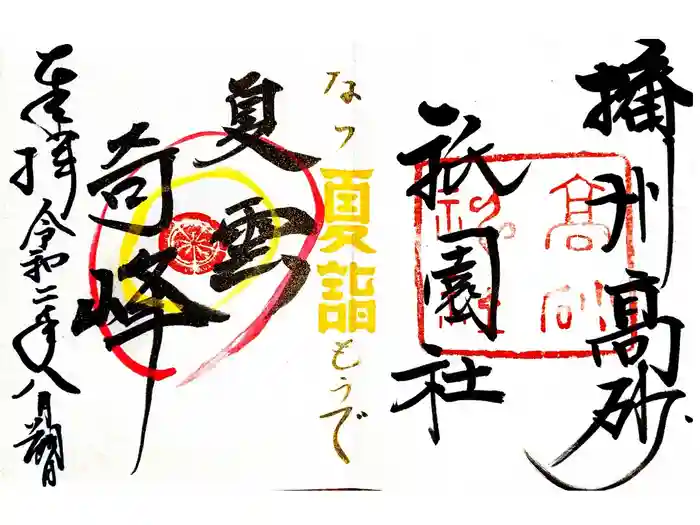 播州高砂
祇園社
高砂
なつ夏詣もうで
夏雲
奇峰
奉拝 令和二年八月朔日